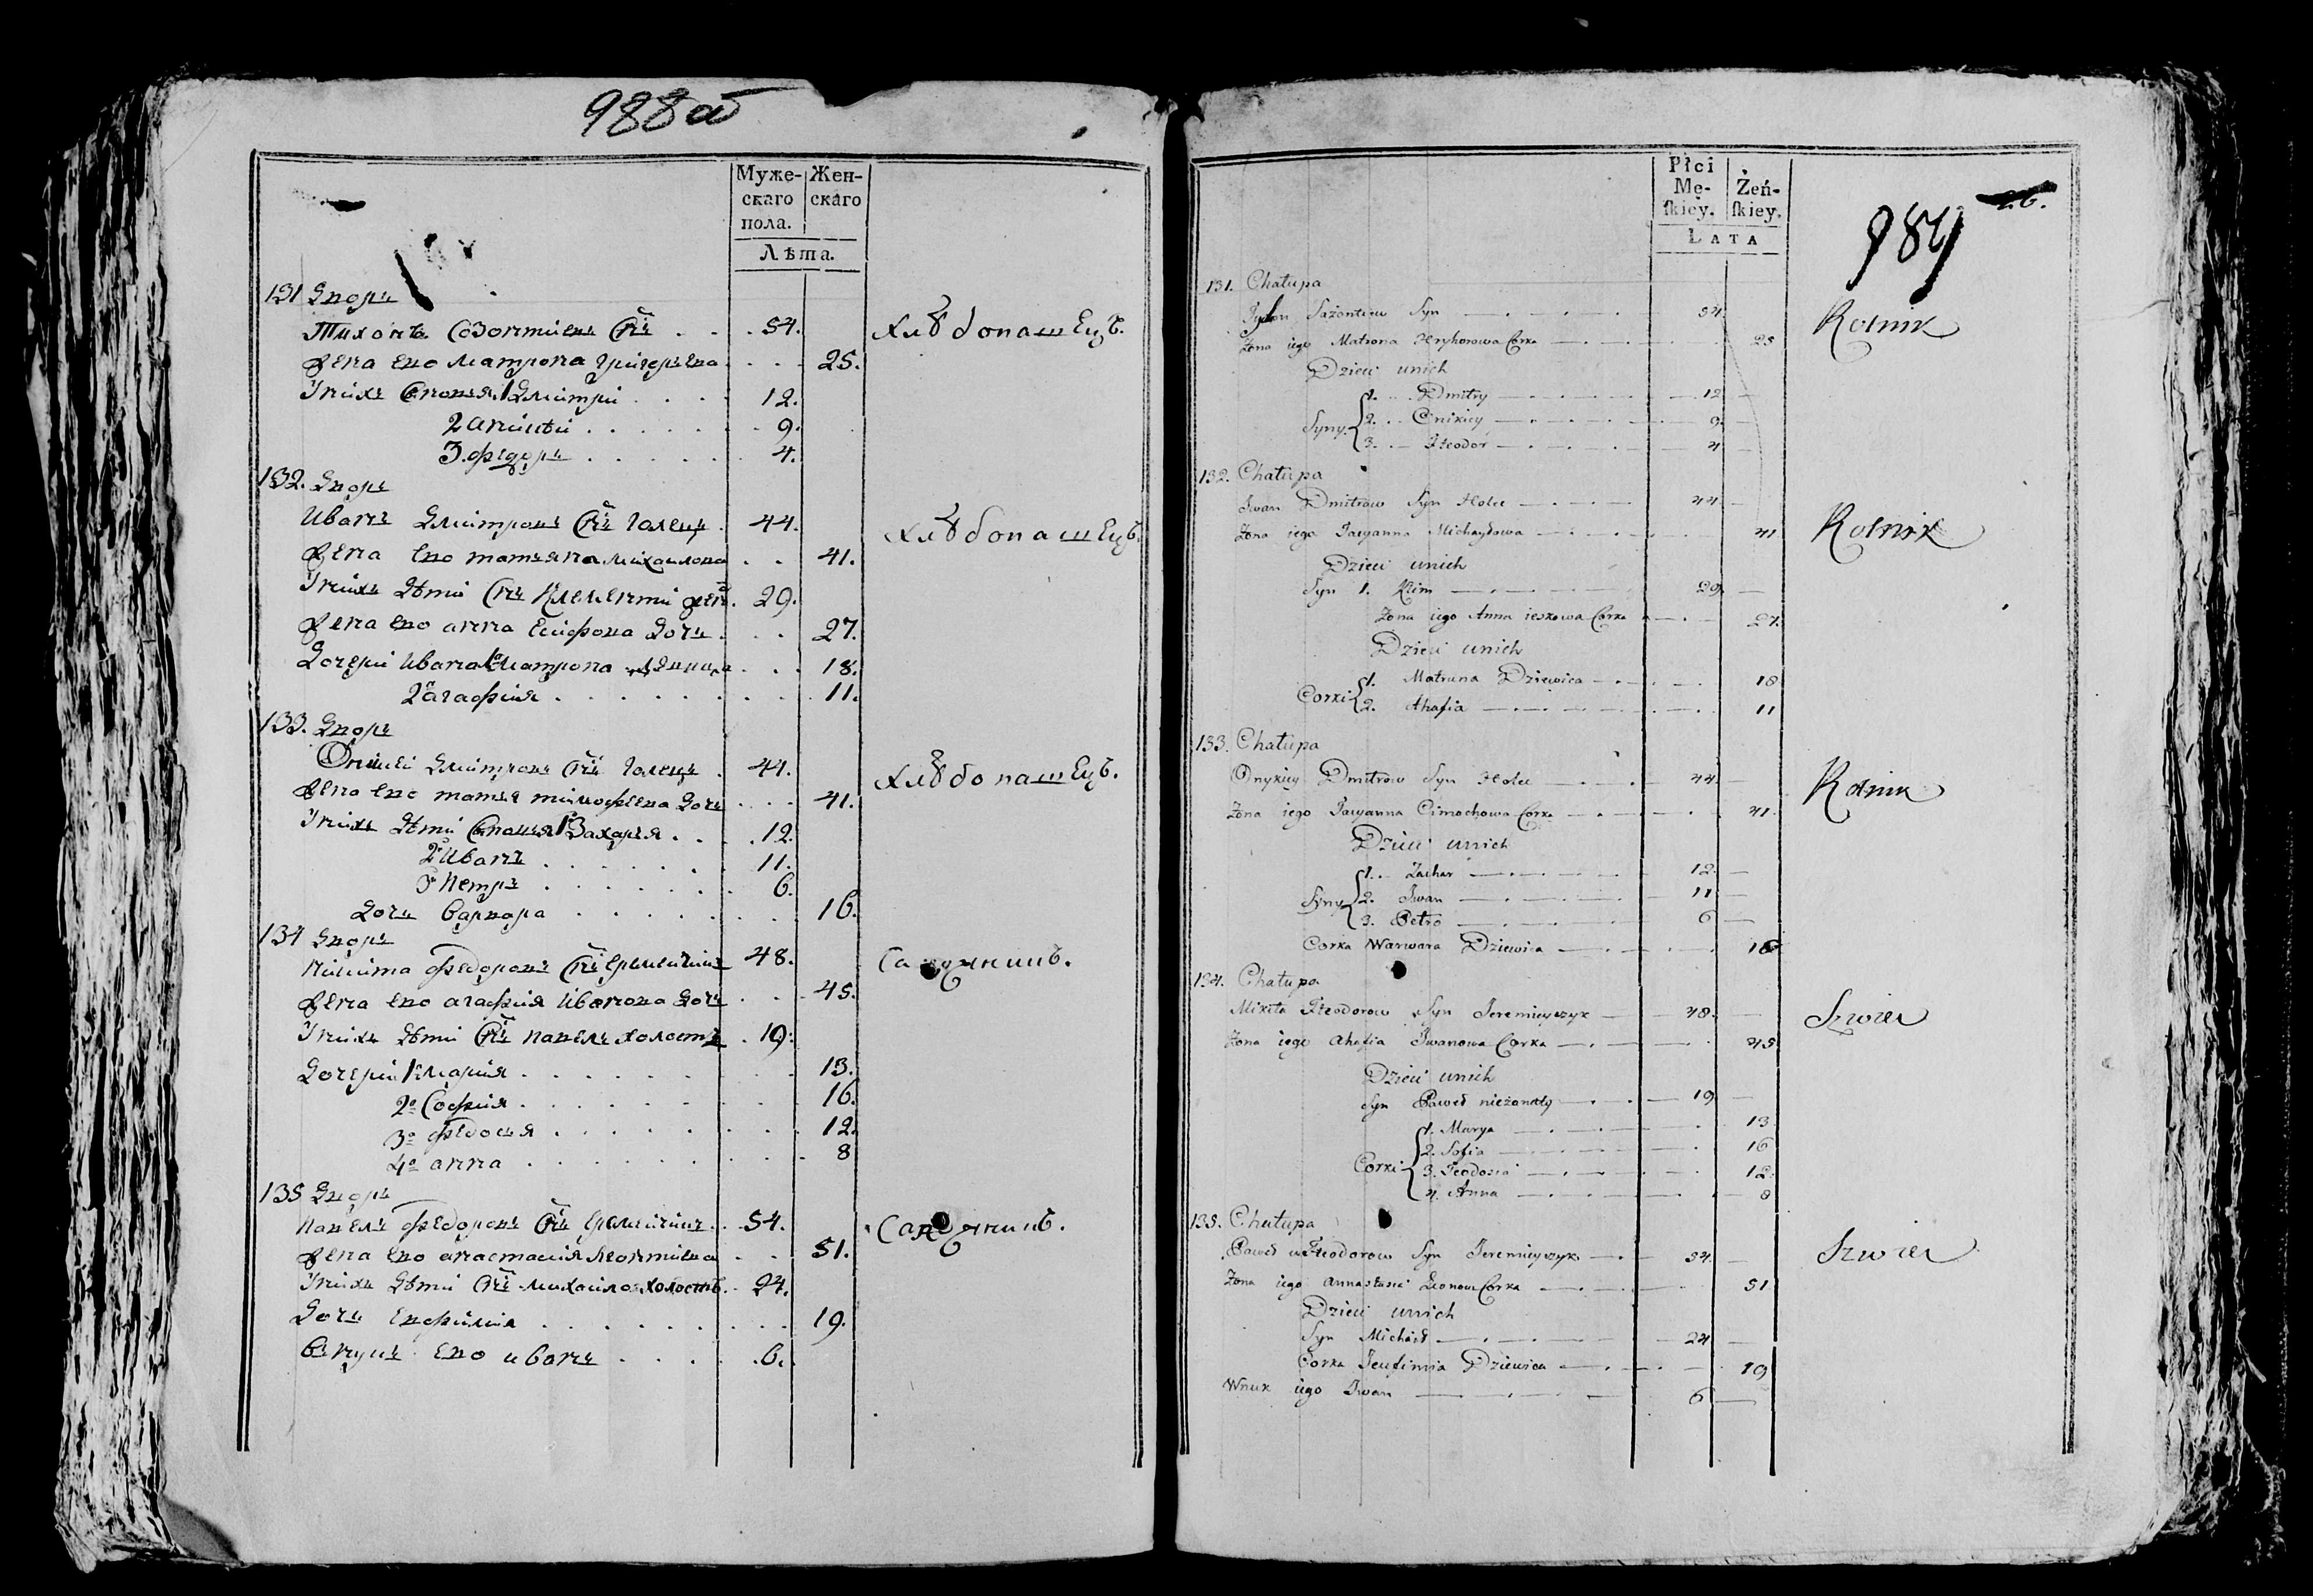 988 об
Муже-
скаго
пола.
Жен-
скаго
Лѣта.
131 Дворъ
Тихонъ Созонтиевъ Снъ 54. Хлѣбопашецъ.
Жена ево Матрона Григорьева 25.
У нихъ Сыновья 1 Дмитрій 12.
2 Аникѣй 9.
3. Федоръ 4.
132. Дворъ
Иванъ Дмитровъ Снъ Голецъ 44. Хлѣбопашецъ.
Жена ево Татьяна Михаилова 41.
У нихъ Дѣти Снъ Клементий жен. 29.
Жена ево Анна Дочь 27.
Дочери Ивана 1 Матрона 18.
2 Агафия 11.
133. Дворъ
Оникѣй Дмитровъ Снъ Голецъ 44. Хлѣбопашецъ.
Жена ево Татья Тимофѣева Дочь 41.
У нихъ Дѣти Сыновья 1 Захарья 12.
2 Иванъ 11.
3 Петръ 6.
Дочь Варвара 16.
134 Дворъ
Никита Федоровъ Снъ 48. Сапожникъ.
Жена ево Агафия Иванова Дочь 45.
У нихъ Дѣти Снъ Павелъ холостъ 19.
Дочери 1 Мария 13.
2я София 16.
3я Федосья 12.
4я Анна 8
135 Дворъ
Павелъ Федоровъ Снъ 54. Сапожникъ.
Жена ево Анастасия Леонтиева 51.
У нихъ Дѣти Снъ Михаило холостъ 24.
Дочь Евфимия 19.
Внукъ ево Иванъ 6.
Płci
Mę-
skiey.
Żeń-
skiey.
LATA
26.
989
131. Chałupa
Tychon Sażontiew Syn 54 Rolnik
Żona iego Matrona Hryhorowa Corka 25
Dzieci unich
Syny 1. Dmitry 12
2. Onikiey 9
3. Fteodor 4
132. Chałupa
Iwan Dmitrow Syn Holec 44 Rolnik
Żona iego Tacyanna Michayłowa 41
Dzieci unich
Syn 1. Klim 29
Żona iego Anna ieskowa Corka 27
Dzieci unich
Corki 1. Matruna Dziewica 18
2. Ahafia 11
133. Chałupa
Onykiey Dmitrow Syn Holec 44 Rolnik
Żona iego Tacyanna Cimochowa Corka 41
Dzieci unich
Syny 1. Zachar 12
2. Iwan 11
3. Petro 6
Corka Warwara Dziewica 16
134. Chałupa
Mikita Fteodorow Syn Jeremieyczyk 48 Szwiec
Żona iego Ahafia Iwanowa Corka 45
Dzieci unich
Syn Paweł nieżonaty 19
Corki 1. Marya 13
2. Sofia 16
3. Teodosia 12
4. Anna 8
135. Chałupa
Paweł Fteodorow Syn Jeremieyczyk 54 Szwiec
Żona iego Annastasia Leonowa Corka 51
Dzieci unich
Syn Michał 24
Corka Jeufimia Dziewica 19
Wnuk iego Iwan 6